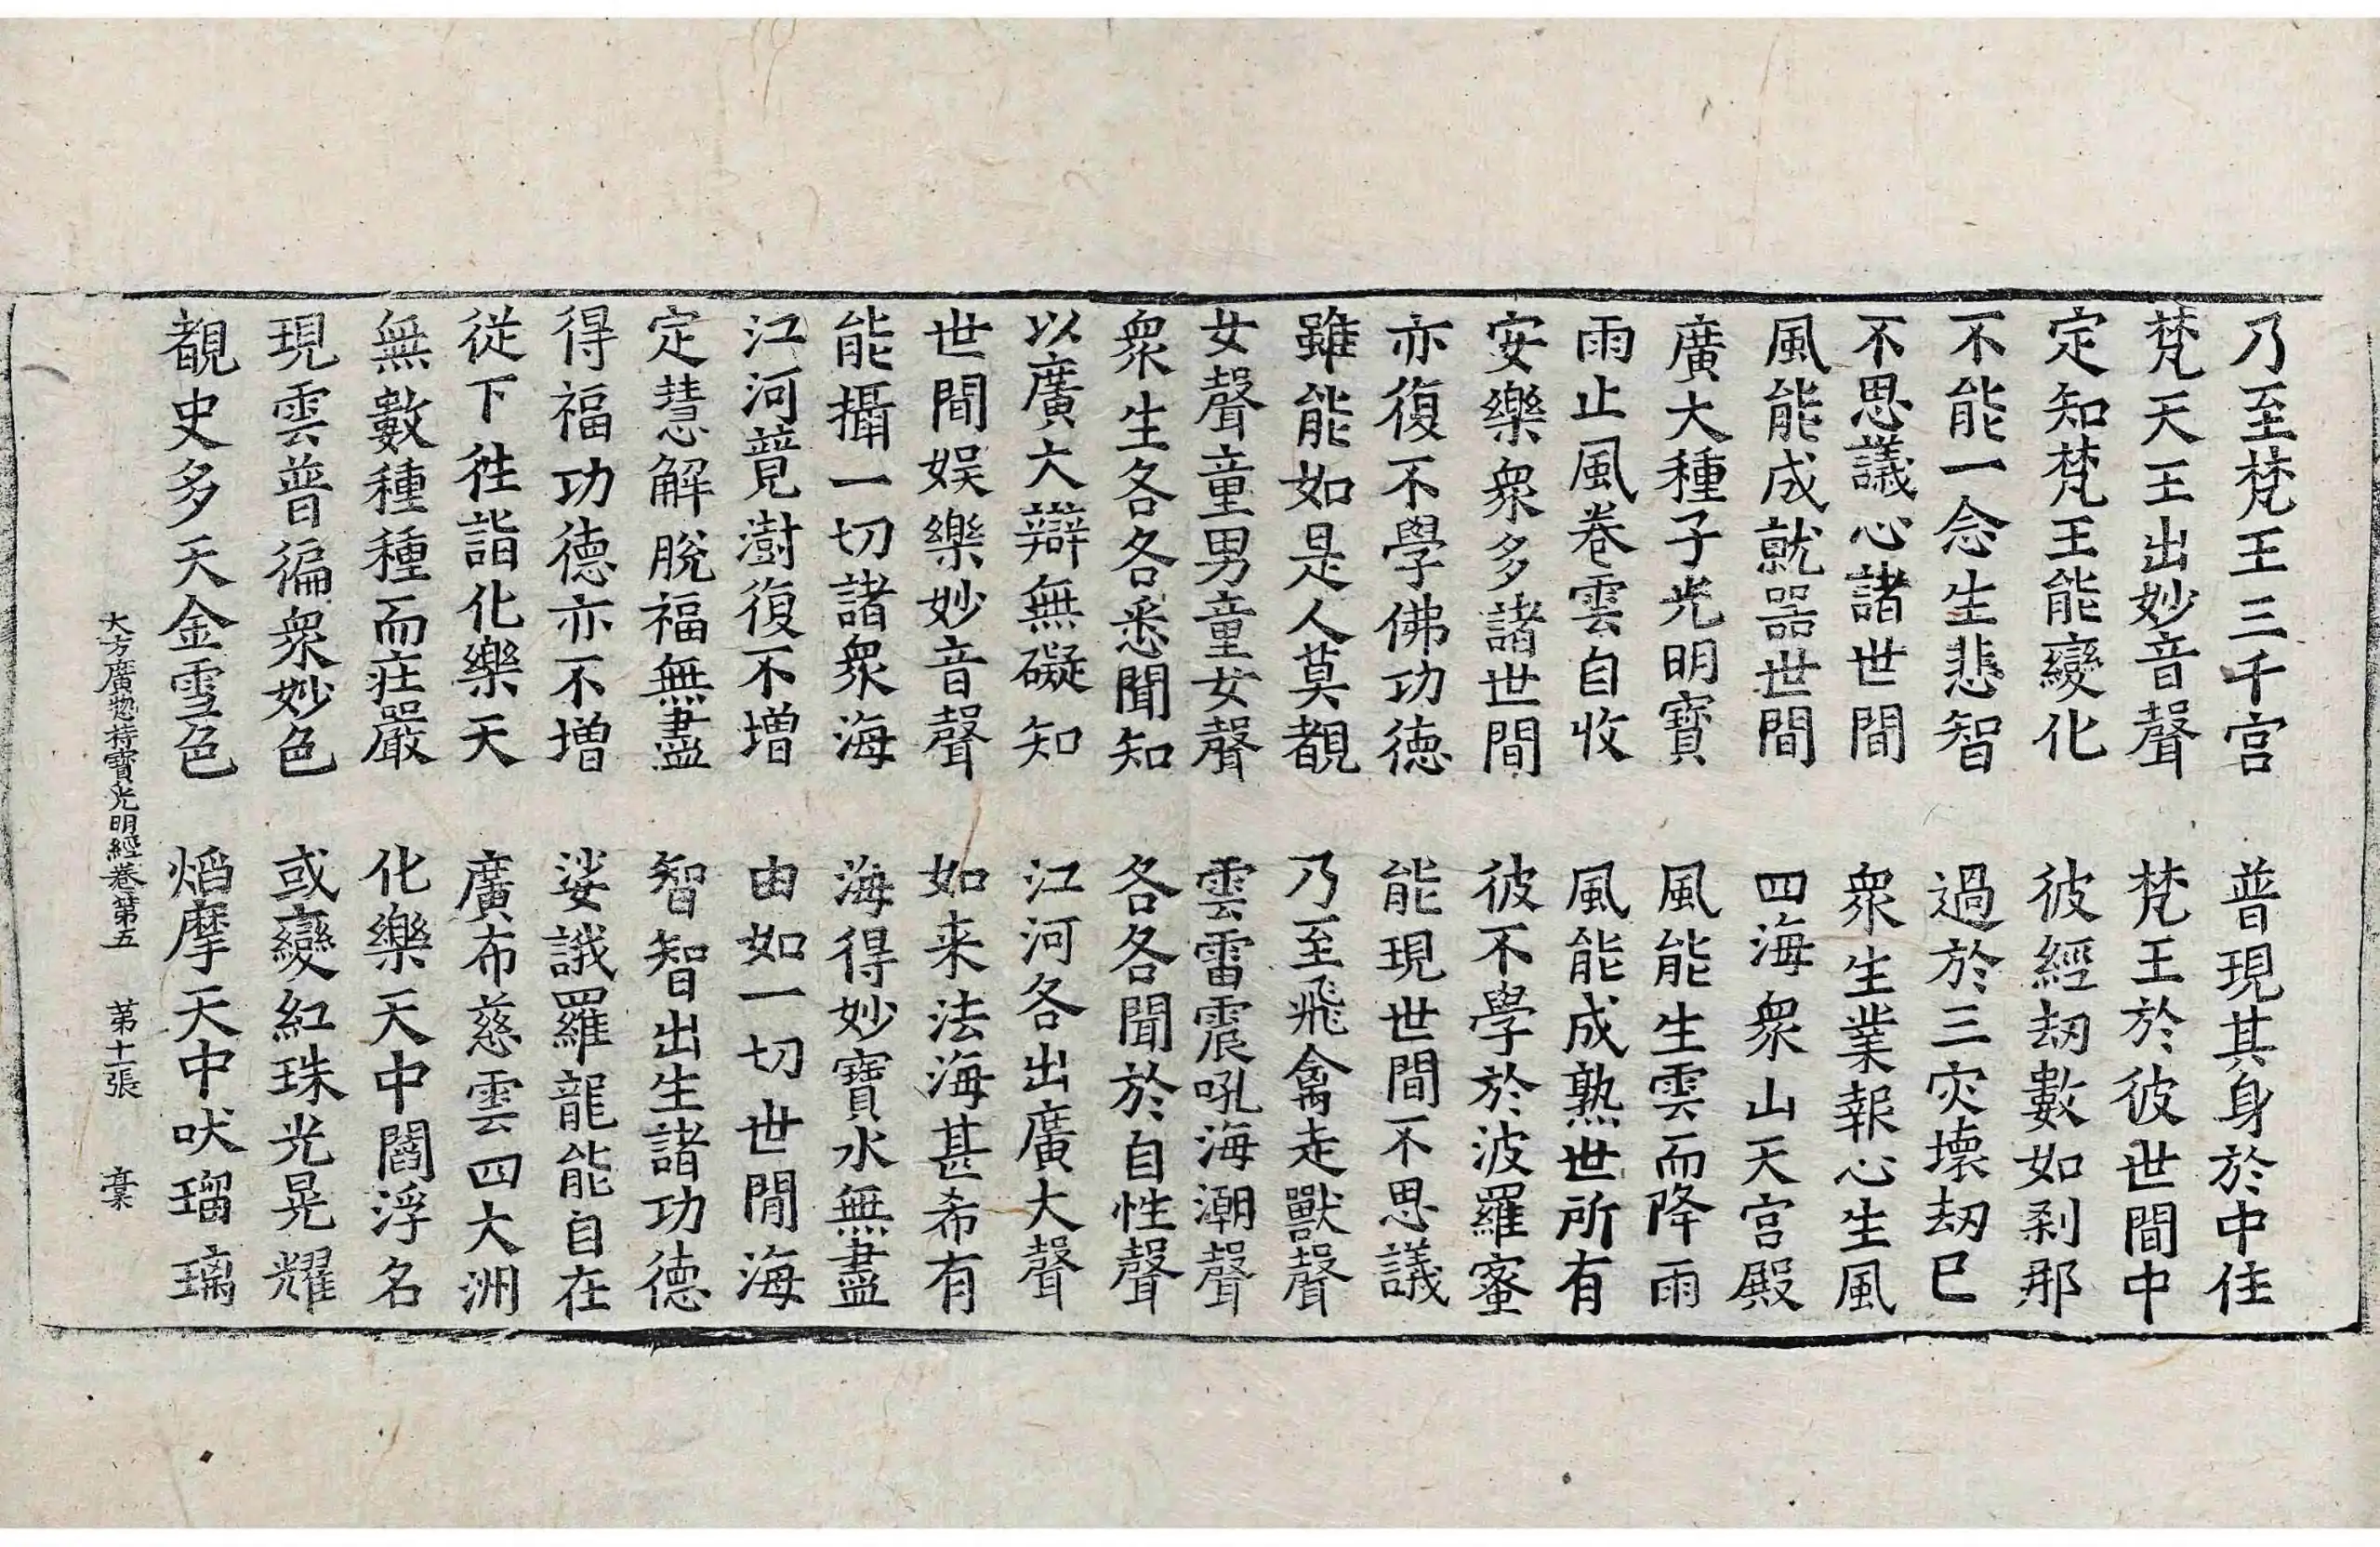 乃至梵王三千宫　普現其身於中住
梵天王出妙音聲　梵王於彼世間中
定知梵王能變化　彼經劫數如剎那
不能一念生悲智　過於三灾壞劫已
不思議心諸世間　衆生業報心生風
風能成就噐世間　四海衆山天宫殿
廣大種子光明寶　風能生雲而降雨
雨止風卷雲自收　風能成熟世所有
安樂衆多諸世間　彼不學於波羅蜜
亦復不學佛功徳　能現世間不思議
雖能如是人莫覩　乃至飛禽走獸聲
女聲童男童女聲　雲雷震吼海潮聲
衆生各各悉聞知　各各聞於自性聲
以廣大辯無礙知　江河各出廣大聲
世間娱樂妙音聲　如来法海甚希有
能攝一切諸衆海　海得妙寶水無盡
江河競澍復不增　由如一切世閒海
定慧解脫福無盡　智智出生諸功德
得福功德亦不增　娑誐羅龍能自在
從下徃詣化樂天　廣布慈雲四大洲
無數種種而莊嚴　化樂天中閻浮名
現雲普徧衆妙色　或變紅珠光晃耀
覩史多天金雪色　熖摩天中吠瑠璃
大方廣惣持寶光明經卷第五　第十一張　槀